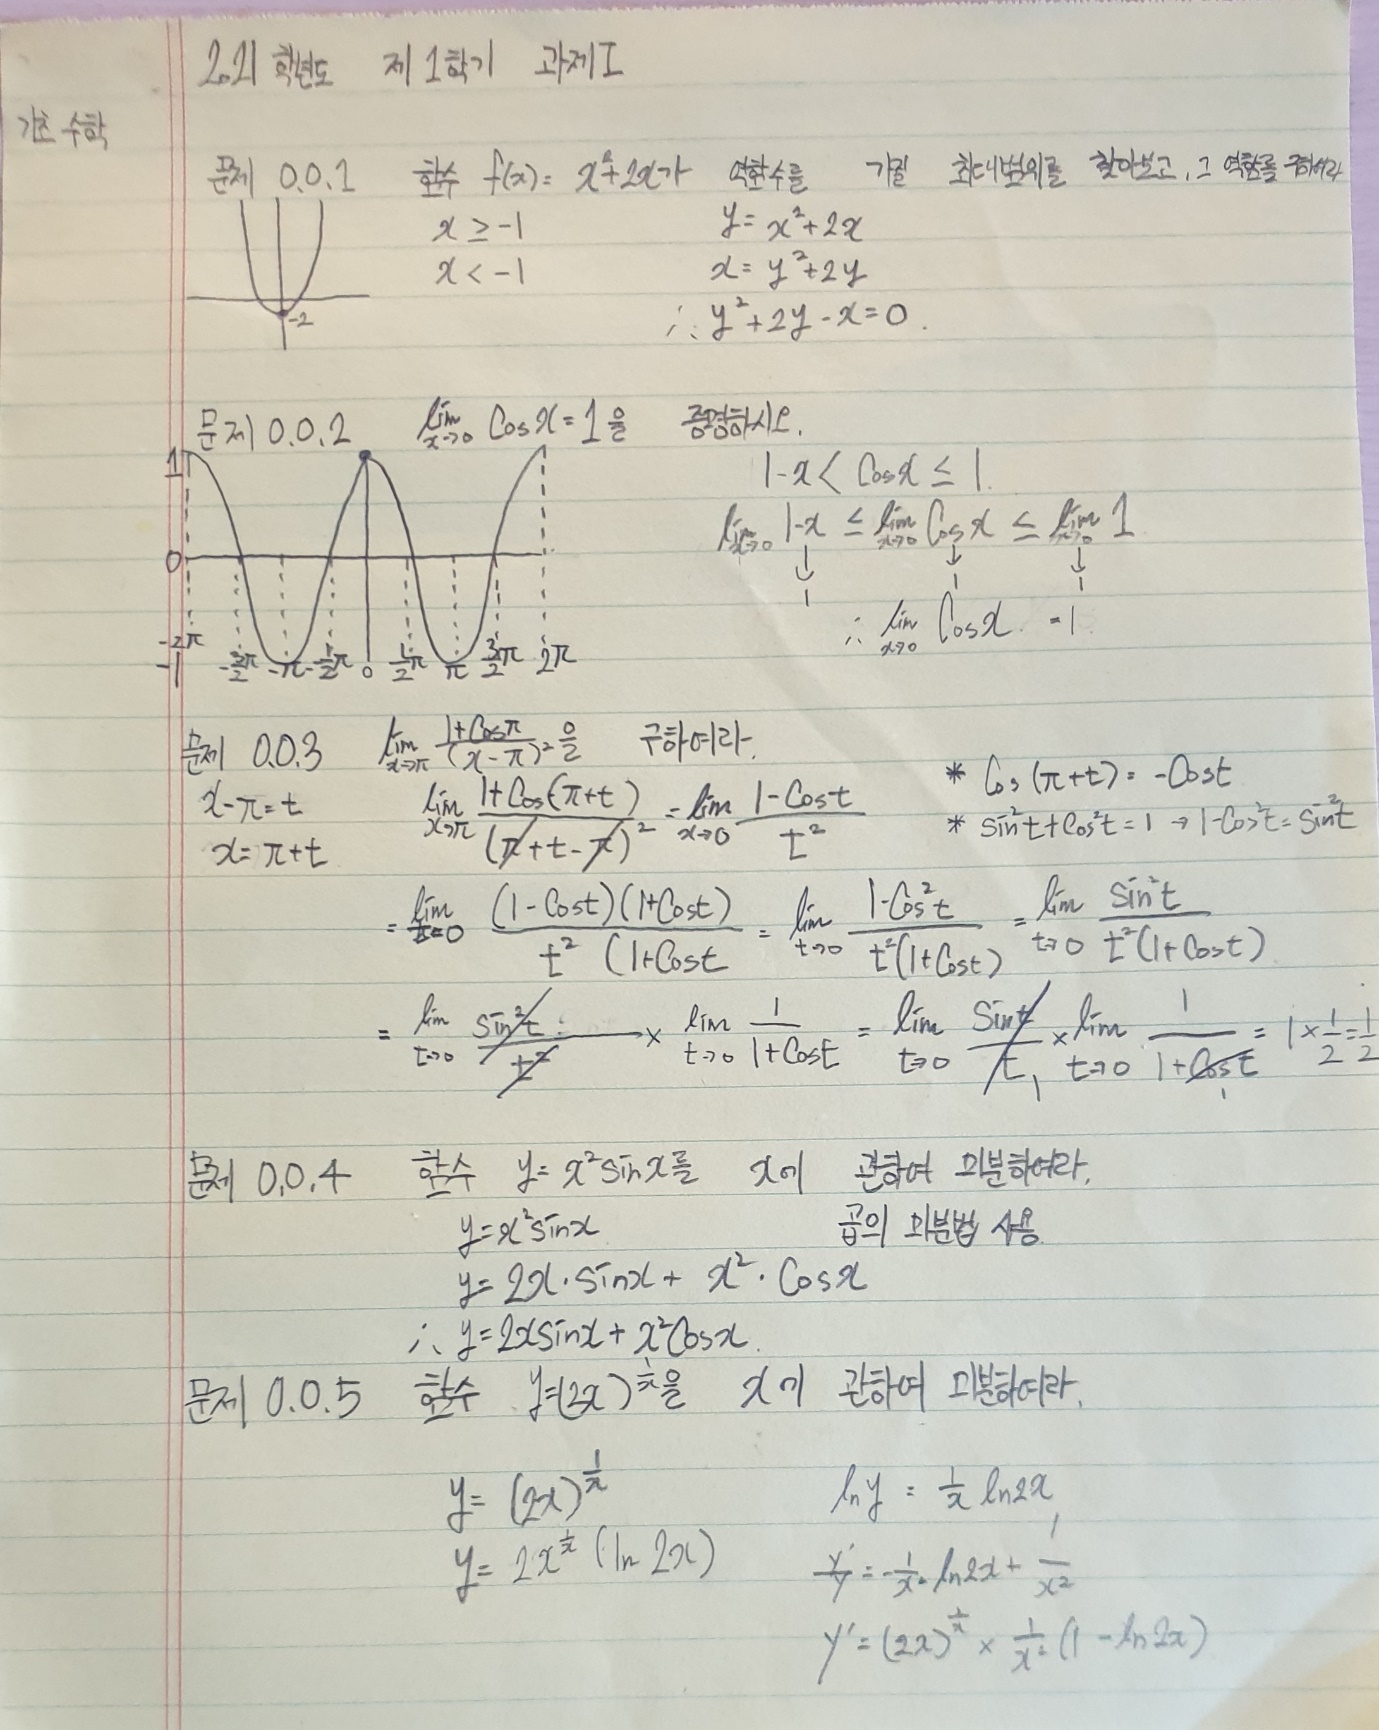 2021 학년도 제 1학기 과제I
기초 수학
문제 0.0.1 함수 f(x) = x²+2x가 역함수를 가질 최대범위를 찾아보고, 그 역함를 구하여라
x ≥ -1 y = x²+2x
x < -1 x = y²+2y
-2 ∴ y²+2y-x=0.
문제 0.0.2 lim x→0 Cosx = 1을 증명하시오.
1 1-x < Cosx ≤ 1.
lim x→0 1-x ≤ lim x→0 Cosx ≤ lim x→0 1
0 ↓ ↓ ↓
1 1 1
∴ lim x→0 Cosx = 1
-2π
-1 -3/2π -π -1/2π 0 1/2π π 3/2π 2π
문제 0.0.3 lim x→π 1+Cosπ/(x-π)² 을 구하여라.
x-π=t lim x→π 1+Cos(π+t)/(π+t-π)² = lim x→0 1-Cost/t² * Cos(π+t) = -Cost
x=π+t * sin²t+Cos²t=1 → 1-Cos²t=sin²t
= lim t→0 (1-Cost)(1+Cost)/t²(1+Cost = lim t→0 1-Cos²t/t²(1+Cost) = lim t→0 sin²t/t²(1+Cost)
= lim t→0 sin²t/t² × lim t→0 1/1+Cost = lim t→0 Sint/t 1 × lim t→0 1/1+Cost 1 = 1×1/2=1/2
문제 0.0.4 함수 y=x²sinx를 x에 관하여 미분하여라.
y=x²sinx 곱의 미분법 사용
y= 2x·sinx + x²·Cosx
∴ y=2xsinx+x²Cosx.
문제 0.0.5 함수 y=(2x)^1/x을 x에 관하여 미분하여라.
y= (2x)^1/x lny = 1/x ln2x
y= 2x^1/x (ln 2x) y'/y = -1/x² ln2x + 1/x²
y' = (2x)^1/x × 1/x² (1 - ln2x)